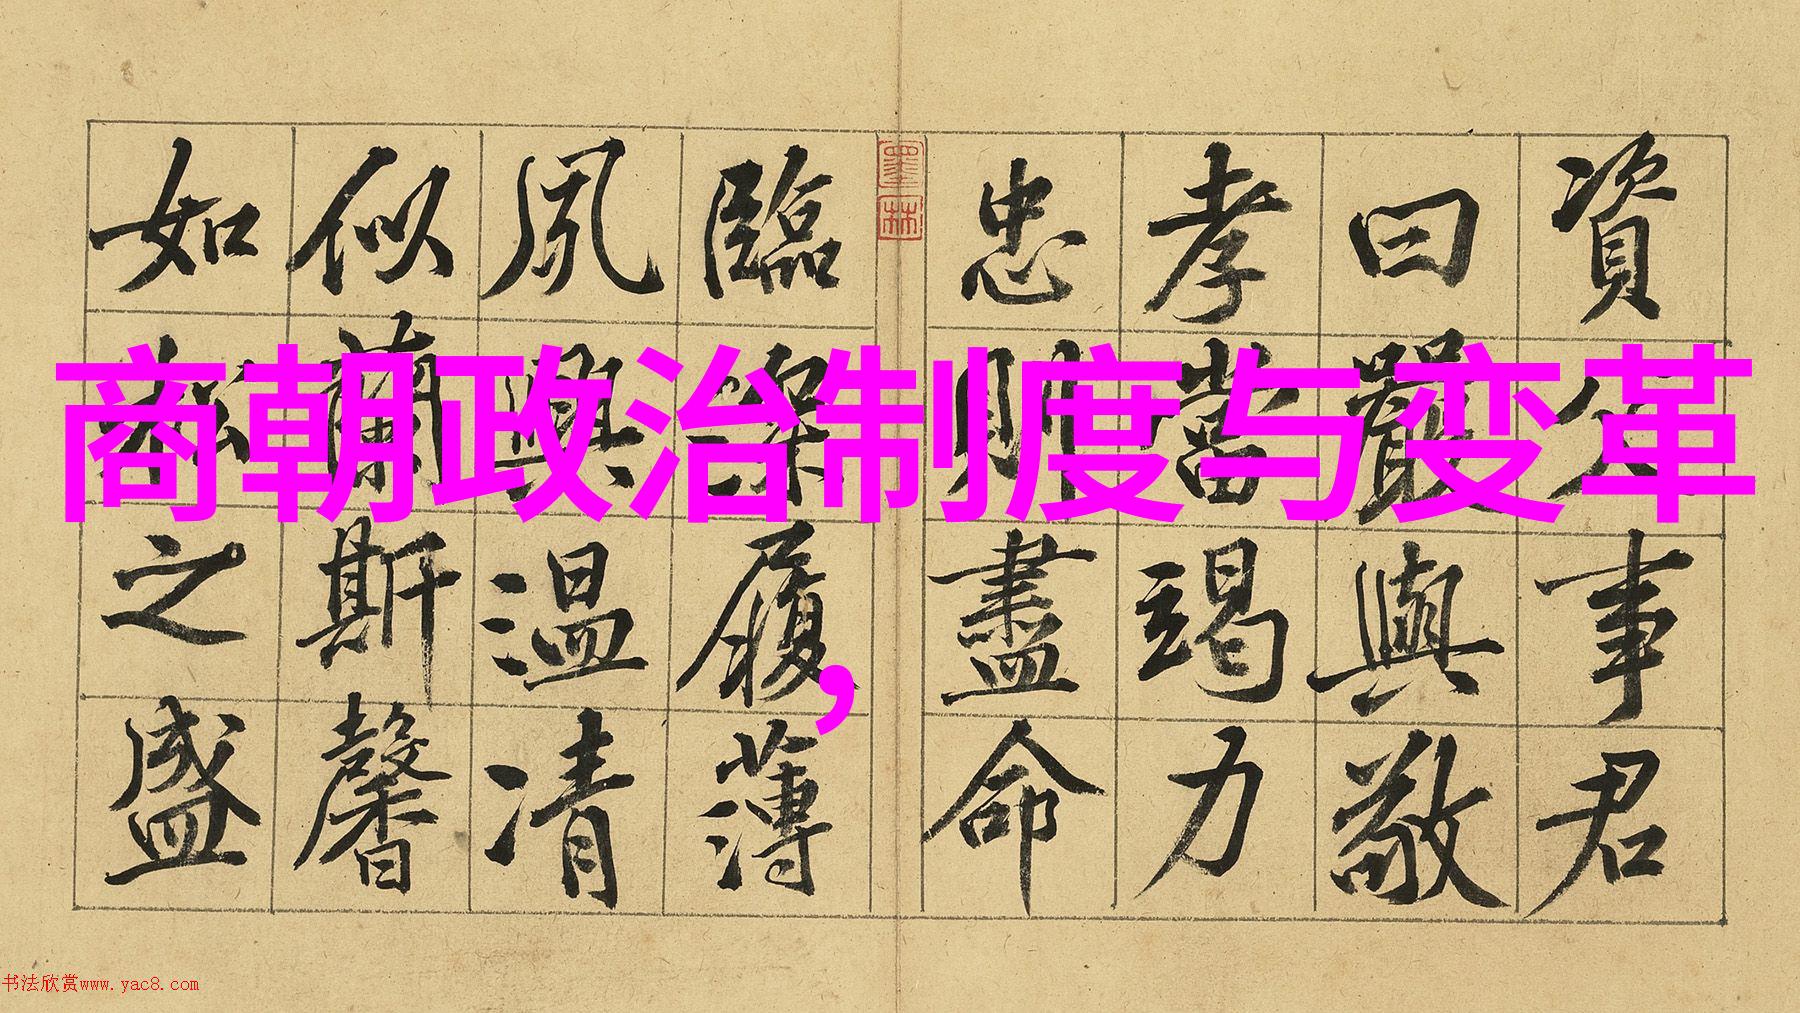 商朝政治制度与变革
，
資父事君
曰嚴與敬
孝當竭力
忠則盡命
墨林
臨深履薄
夙興温凊
似蘭斯馨
如松之盛
书法欣赏www.yac8.com